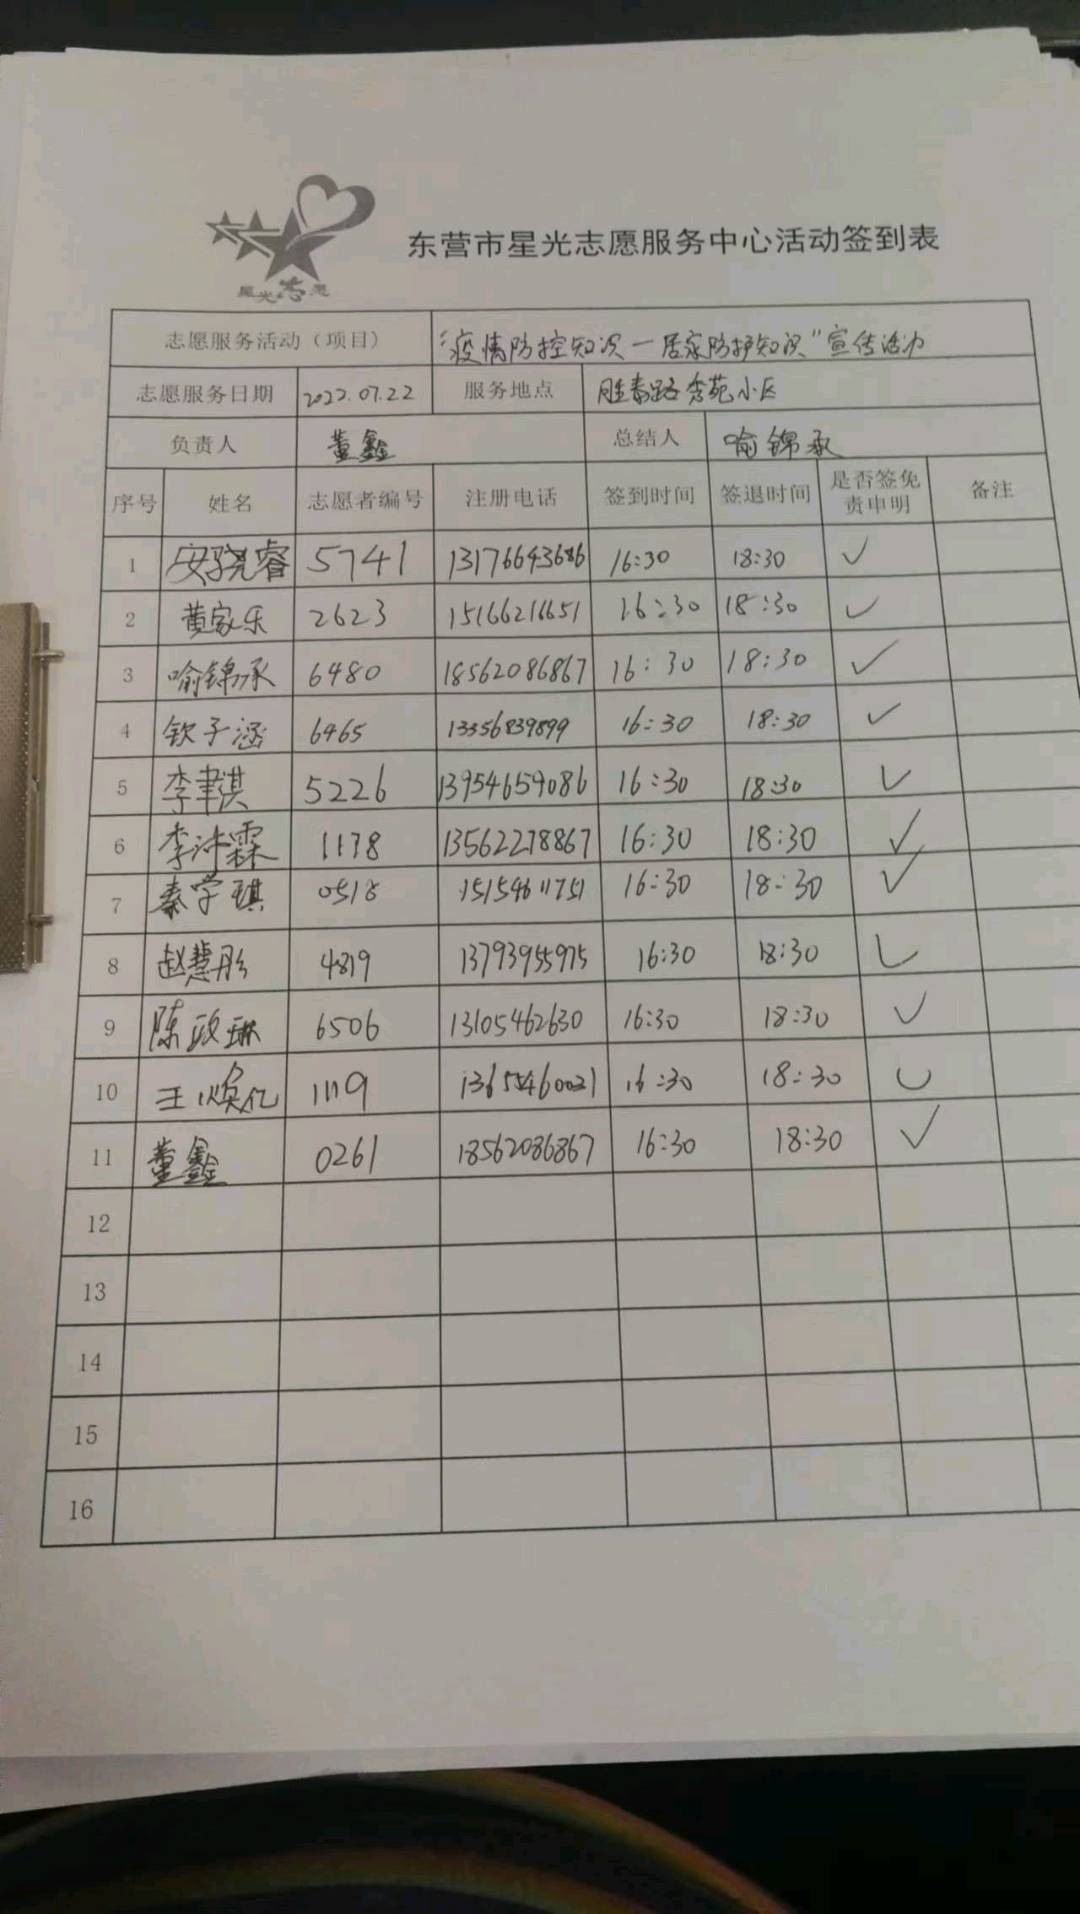 星光志愿
东营市星光志愿服务中心活动签到表
志愿服务活动（项目） “疫情防控知识—居家防护知识”宣传活动
志愿服务日期 2022.07.22 服务地点 胜泰路秀苑小区
负责人 董鑫 总结人 喻锦承
序号 姓名 志愿者编号 注册电话 签到时间 签退时间 是否签免责申明 备注
1 安骁睿 5741 13176643686 16:30 18:30 ✓
2 黄家乐 2623 15166216651 16:30 18:30 ✓
3 喻锦承 6480 18562086867 16:30 18:30 ✓
4 钦子涵 6465 13356839899 16:30 18:30 ✓
5 李聿淇 5226 13954659086 16:30 18:30 ✓
6 李沛霖 1178 13562278867 16:30 18:30 ✓
7 秦学琪 0518 15154611751 16:30 18:30 ✓
8 赵慧彤 4819 13793955975 16:30 18:30 ✓
9 陈政琳 6506 13105462630 16:30 18:30 ✓
10 王焕亿 1119 16:30 18:30 ✓
11 董鑫 0261 18562086867 16:30 18:30 ✓
12
13
14
15
16